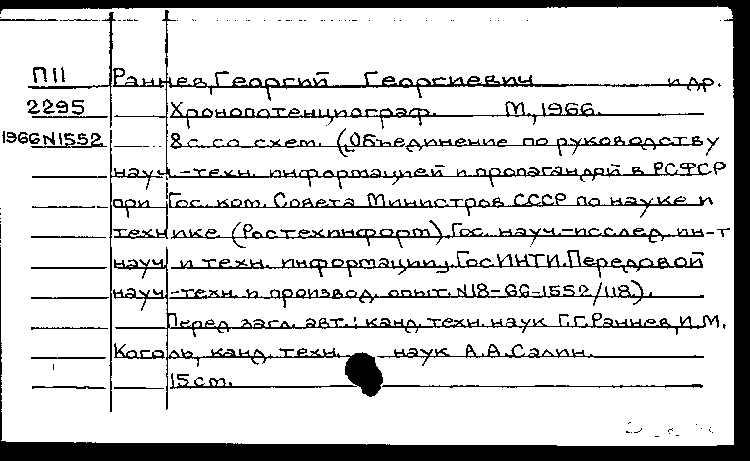 П11 Раннев, Георгий Георгиевич и др.
2295 Хронопотенциограф. М., 1966.
1966N1552 8 с. со схем. (Объединение по руководству
науч.-техн. информацией и пропагандой в РСФСР
при Гос. ком. Совета Министров СССР по науке и
технике (Ростехинформ). Гос. науч.-исслед. ин-т
науч. и техн. информации, ГосИНТИ. Передовой
науч.-техн. и производ. опыт. N18-66-1552/118).
Перед загл. авт.: канд. техн. наук Г.Г.Раннев, И.М.
Коголь, канд. техн. наук А.А.Салин.
15 cm.